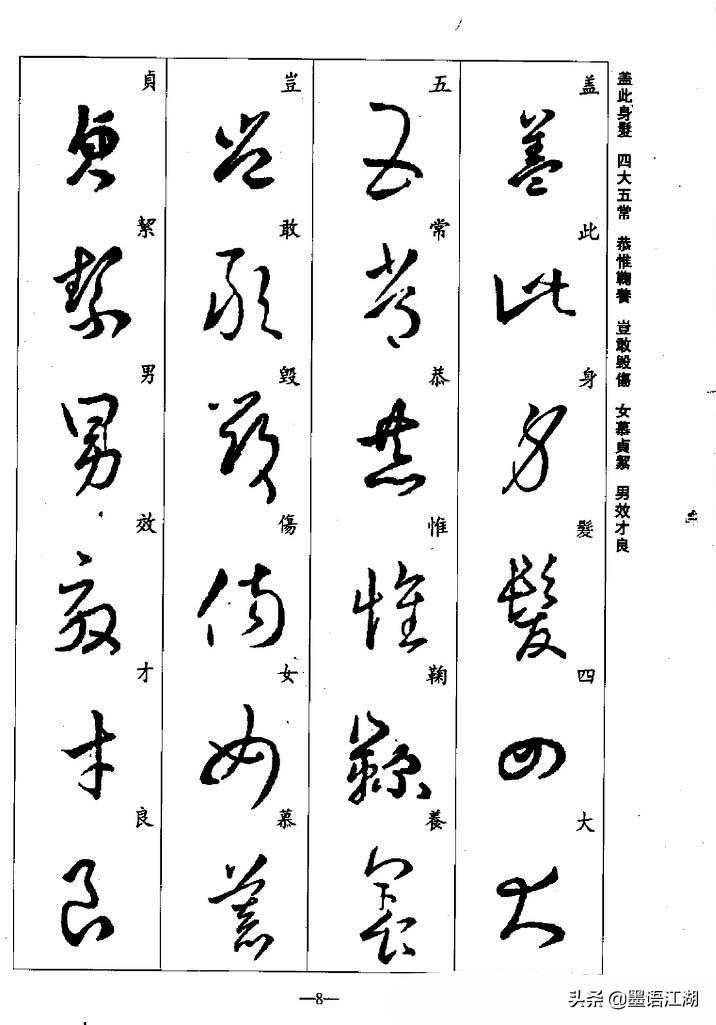 盖此身髮　四大五常　恭惟鞠養　豈敢毀傷　女慕貞絜　男效才良
盖此身髮四大
五常恭惟鞠養
豈敢毀傷女慕
貞絜男效才良
—8—
头条 @墨语江湖